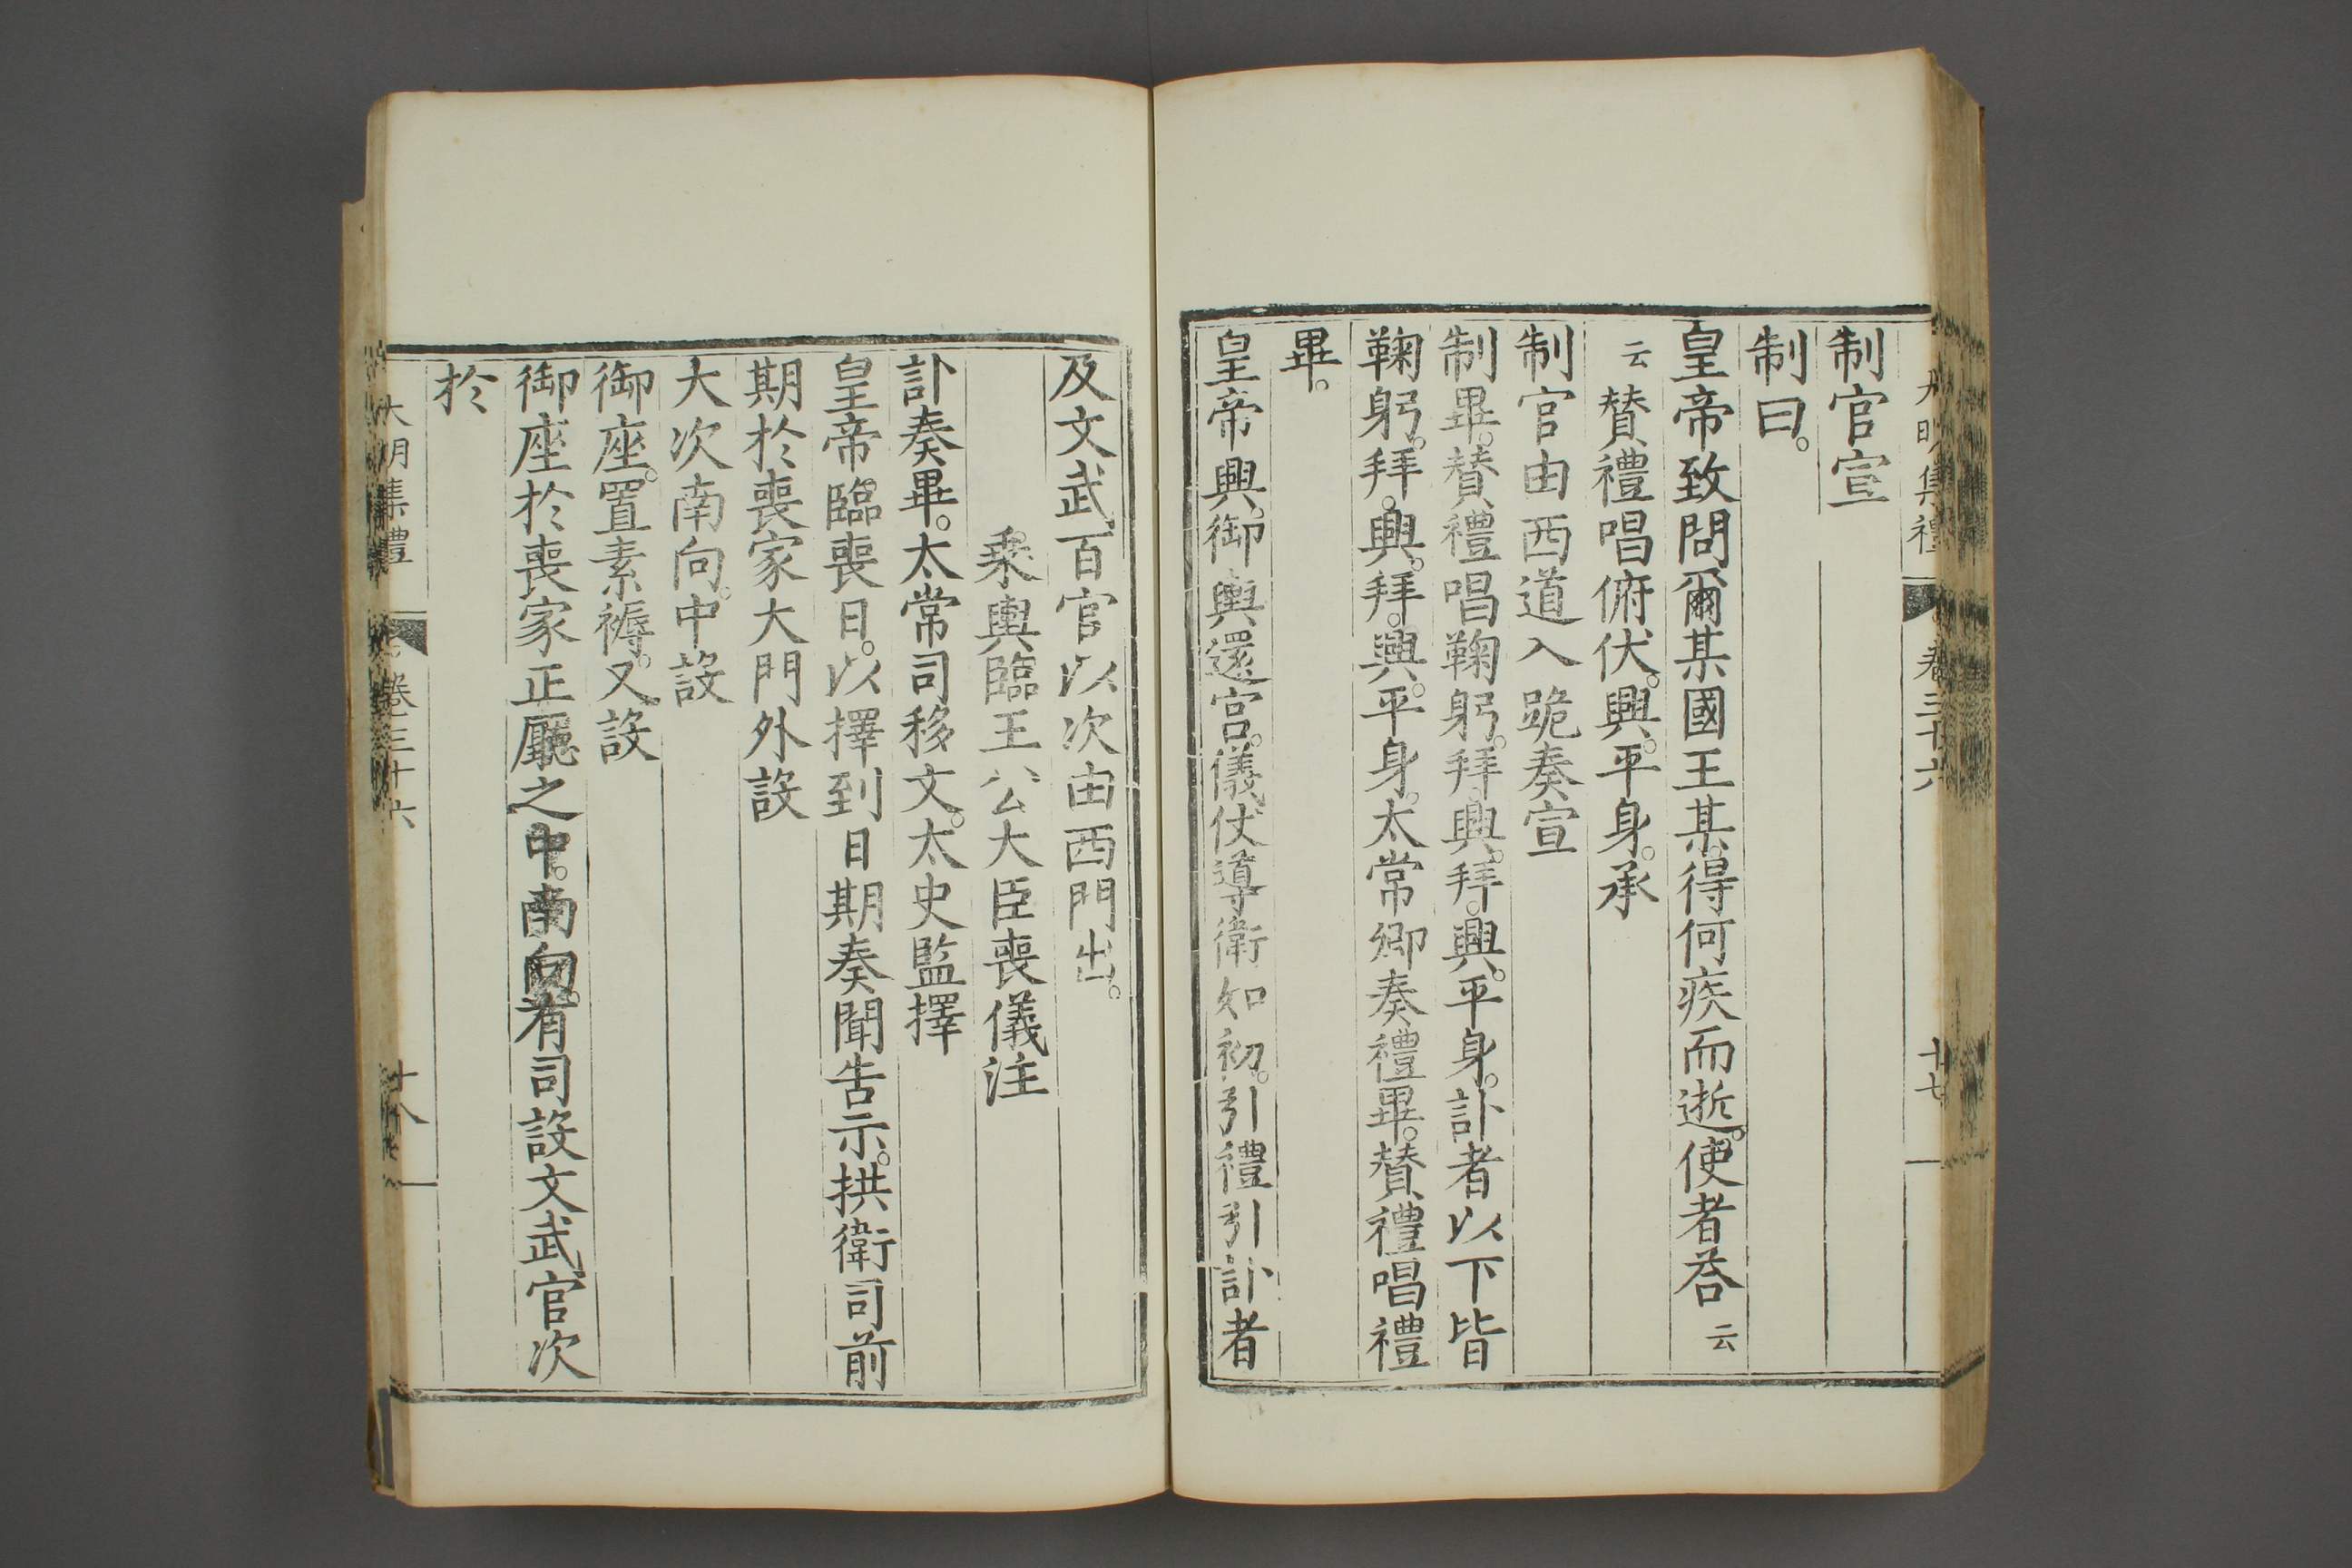 大明集禮 卷三十六 十七
制官宣
制曰。
皇帝致問爾某國王某。得何疾而逝。使者荅云
云賛禮唱俯伏。興。平身。承
制官由西道入跪奏宣
制畢。賛禮唱鞠躬。拜。興。拜。興。平身。訃者以下皆
鞠躬。拜。興。拜。興。平身。太常卿奏禮畢。賛禮唱禮
畢。
皇帝興。御輿還宫。儀仗導衛如初。引禮引訃者
及文武百官以次由西門出。
乘輿臨王公大臣喪儀注
訃奏畢。太常司移文。太史監擇
皇帝。臨喪日。以擇到日期奏聞告示。拱衛司前
期於喪家大門外設
大次南向。中設
御座。置素褥。又設
御座於喪家正廳之中。南向。有司設文武官次
於
大明集禮 卷三十六 十八